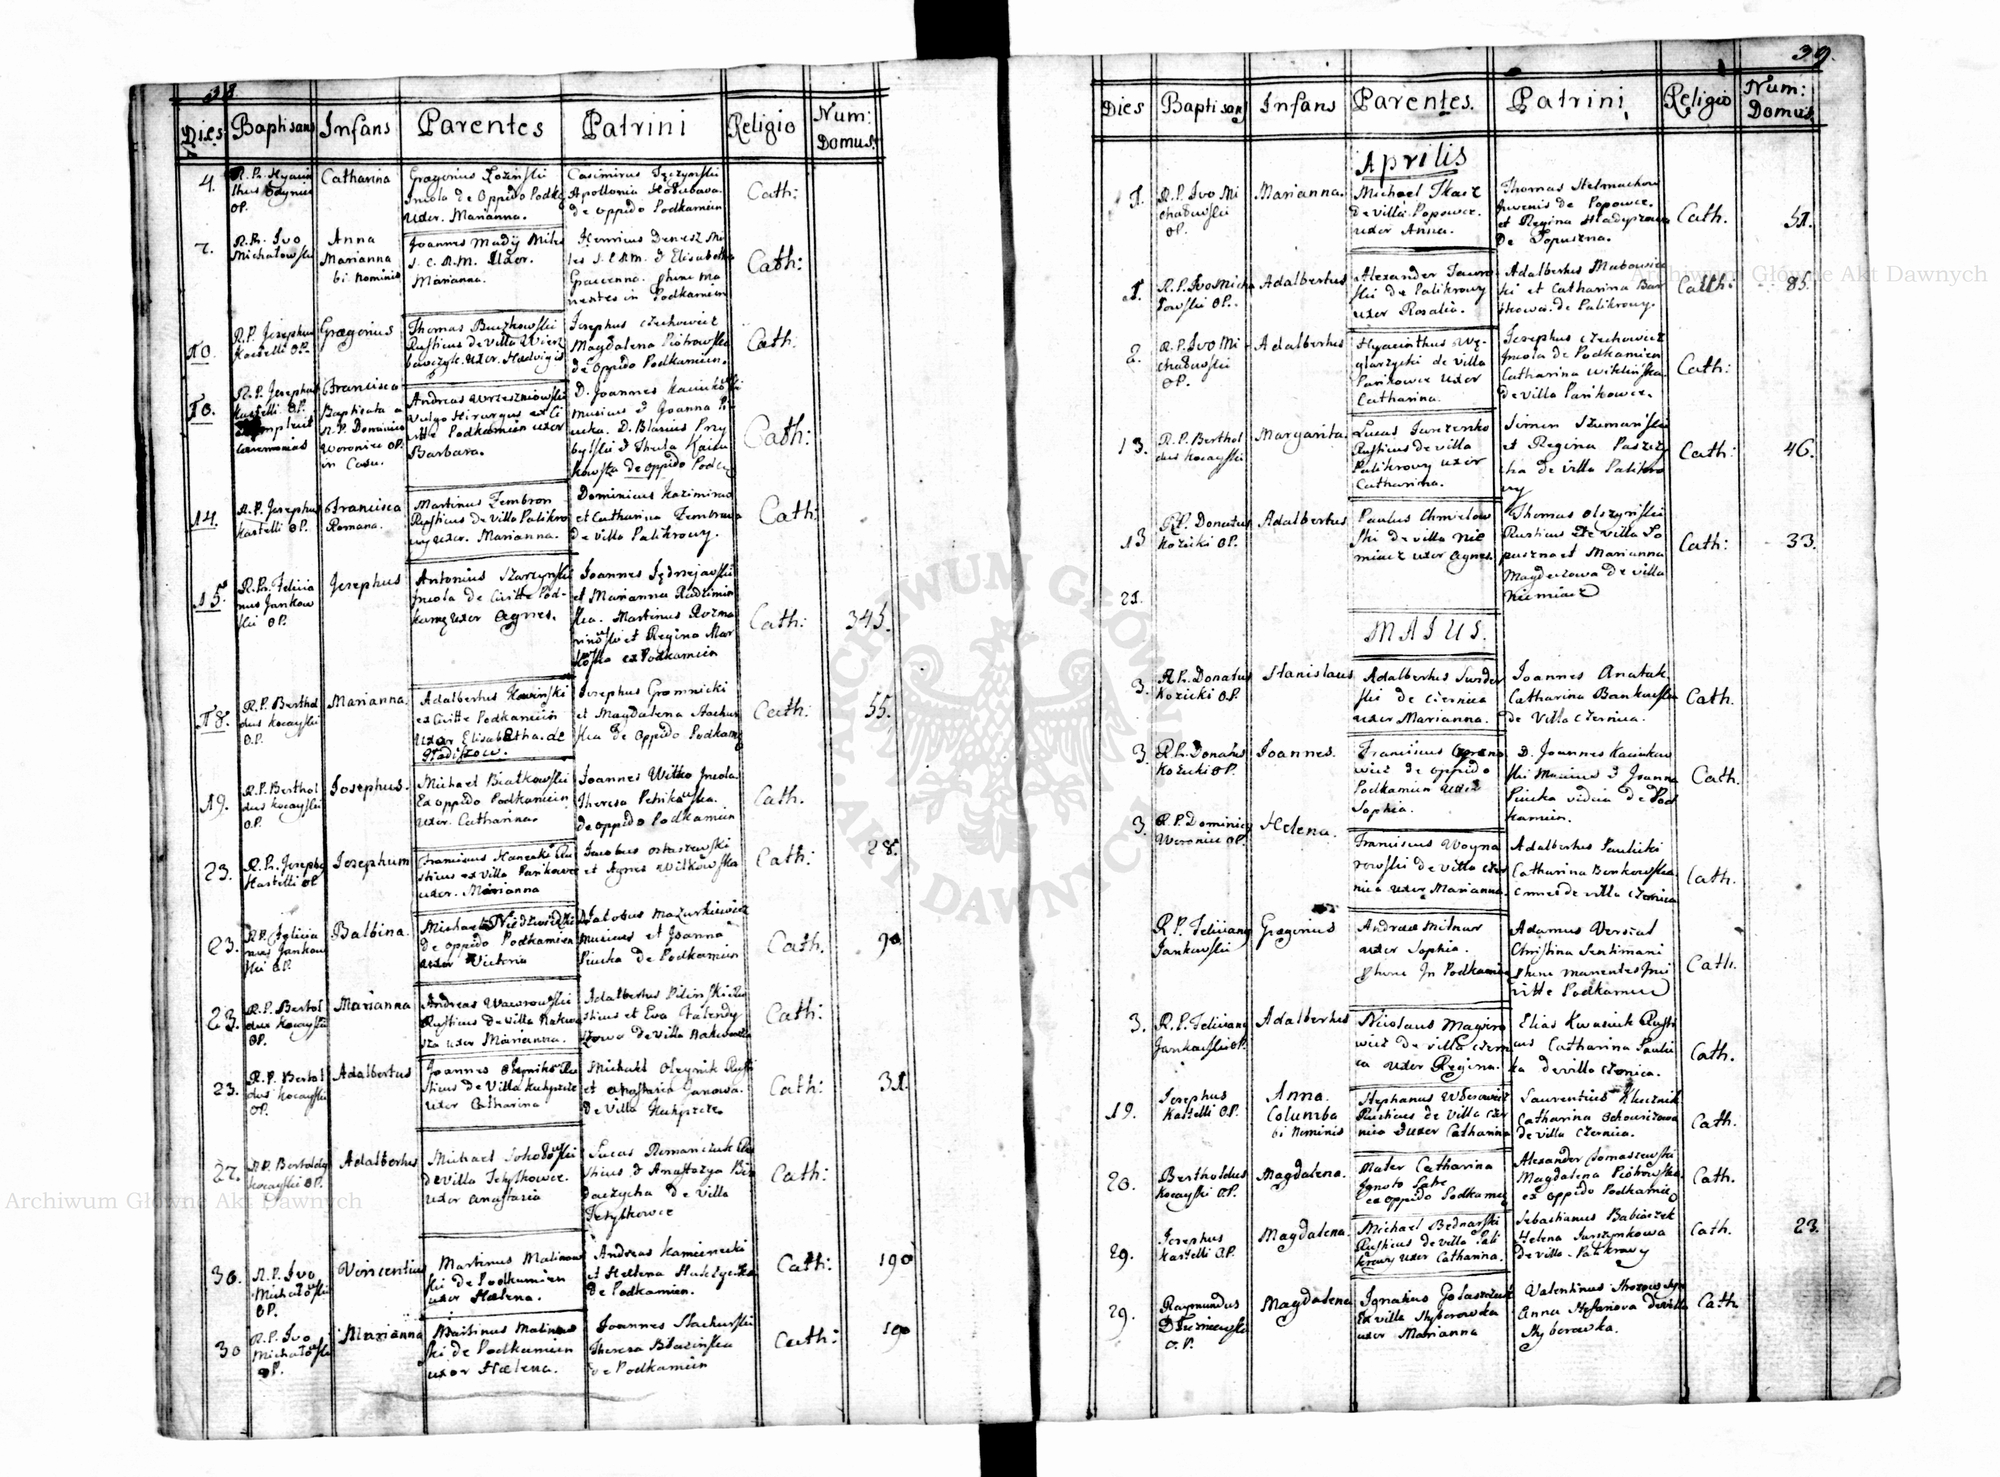 38.
Dies
Baptisans
Infans
Parentes
Patrini
Religio
Num:
Domus.
4.
R. P. Hyacin
thus
OP.
Catharina
Gregorius Łoziński
Incola de Oppido Podka
uxor. Marianna.
Casimirus Tęczynski
Apollonia Hołubova.
de oppido Podkamien
Cath:
7.
R. P. Ivo
Michałowski
Anna
Marianna
bi nominis
Joannes Madÿ Miles
S. C. R. M. Uxor.
Marianna.
Henricus Denesz Mi
les S. C. R. M. & Elisabetha
nentes in Podkamien
Cath:
10.
R. P. Josephus
Kastelli OP.
Gregorius
Thomas Buczkowski
Rusticus de Villa Wierz
bowczyk. uxor. Hedvigis
Josephus Czechowicz
Magdalena Piotrowska
de Oppido Podkamien.
Cath:
10.
R. P. Josephus
Kastelli OP.
complevit
ceremonias
Francisca
Baptisata a
R. P. Dominico
Woronicz OP.
in Casu.
Andreas Wrzeszniowski
vulgo Hirurgus ex Ci
vitte Podkamien uxor
Barbara.
D. Joannes Kacinkowski
musicus & Joanna Pi
ucka. D. Blasius Przy
bylski & Thecla Kacin
kowska de oppido Podka
Cath:
14.
R. P. Josephus
Kastelli OP.
Francisca
Romana.
Martinus Zembron
Rusticus de Villa Palikro
wy uxor. Marianna.
Dominicus Kazimirus
et Catharina Zembrona
de Villa Palikrowy.
Cath:
15.
R. P. Felicia
nus Jankow
ski OP.
Josephus
Antonius Starzynski
Incola de Civitte Pod-
kamę uxor Agnes.
Joannes Jędrzejowski
et Marianna Radzimin
ska. Martinus Rozma
rinowski et Regina Mar
kowska ex Podkamien
Cath:
345.
18.
R. P. Berthol
dus Kocayski
O.P.
Marianna.
Adalbertus Kowinski
ex Civitte Podkamien
uxor Elisabetha. de
Hadiszow.
Josephus Gromnicki
et Magdalena Stachur
ska de Oppido Podkamę
Cath:
55.
19.
R. P. Berthol
dus Kocayski
O.P.
Josephus.
Michael Białkowski
Ex oppido Podkamien
uxor. Catharina.
Joannes Witko Incola
Theresa Petrikowska.
de oppido Podkamien
Cath.
23.
R. P. Josephq
Kastelli OP
Josephum
Franciscus Hanecki Ru
sticus ex Villa Pańkowce
uxor. Marianna
Jacobus Ostaszewski
et Agnes Witkowska
Cath:
28.
23.
R. P. Felicia
nus Jankow
ski OP.
Balbina.
Michael Niedzwiedzki
de oppido Podkamien
uxor Victoria
Jacobus Mazurkiewicz
Musicus et Joanna
Piucka de Podkamien
Cath.
90
23.
R. P. Bertol
dus Kocayski
OP.
Marianna
Andreas Wawrowski
Rusticus de Villa Nakwa
sza uxor Marianna.
Adalbertus Pilinski Ru
sticus et Eva Falendy
szowa de Villa Nakwasza
Cath:
23.
R. P. Bertol
dus Kocayski
OP.
Adalbertus
Joannes Olejnik Ru
sticus de Villa Kutyszcze
uxor Catharina
Michael Oleynik Rusti
et Anastasia Janowa.
de Villa Kutyszcze
Cath:
31.
27.
R. P. Bertoldq
Kocayski OP.
Adalbertus
Michael Sokołowski
de Villa Tetylkowce.
uxor Anastasia
Lucas Romanczuk Ru
sticus & Anastazya Bu
daczycha de Villa
Tetylkowce
Cath:
30.
R. P. Ivo
Michałowski
OP.
Vincentius
Martinus Malinow
ski de Podkamien
uxor Helena.
Andreas Kamienecki
et Helena
de Podkamien.
Cath:
190
30
R. P. Ivo
Michałowski
OP.
Marianna
Martinus Malinow
ski de Podkamien
uxor Helena.
Joannes Stachurski
Theresa Blazinska
de Podkamien
Cath:
190
39.
Dies
Baptisans
Infans
Parentes.
Patrini
Religio
Num:
Domus.
Aprilis
1.
R. P. Ivo Mi
chałowski
OP.
Marianna.
Michael Tkacz
de Villa Popowce.
uxor Anna.
Thomas Stelmachow
Juvenis de Popowce.
et Regina Hladyszowa
De Topuszna.
Cath.
51.
1.
R. P. Ivo Micha
łowski OP.
Adalbertus
Alexander Jawor
ski de Palikrowy
uxor Rosalia.
Adalbertus Makowiec
ki et Catharina Bar
tkowa. de Palikrowy.
Cath:
85.
2.
R. P. Ivo Mi-
chałowski
OP.
Adalbertus
Hyacinthus Wę-
glarzycki de villa
Pańkowce uxor
Catharina.
Josephus Czechowicz
Incola de Podkamien
Catharina Witklińska
de villa Pańkowce.
Cath:
13.
R. P. Berthol
dus Kocayski
Margarita.
Lucas Juszenko
Rusticus de villa
Palikrowy uxor
Catharina.
Simon Szumański
et Regina Paszczy
cha de Villa Palikro
wy
Cath:
46.
13
R. P. Donatus
Kozicki OP.
Adalbertus
Paulus Chmielow
ski de villa Nie
miacz uxor Agnes.
Thomas Olszyński
Rusticus de villa To
puszna et Marianna
Magderzowa de villa
Niemiacz
Cath:
33.
21.
MAIUS.
3.
R. P. Donatus
Kozicki OP.
Stanislaus
Adalbertus Swider
ski de Czernica
uxor Marianna.
Joannes Anatak
Catharina Bankowska
de Villa Czernica.
Cath.
3.
R. P. Donatus
Kozicki OP.
Joannes.
Franciscus
wicz de oppido
Podkamien uxor
Sophia.
D. Joannes Kacinkow
ski Musicus & Joanna
Piucka vidua de Pod
kamien.
Cath.
3.
R. P. Dominicq
Woronicz OP.
Helena.
Franciscus Woyna
rowski de villa Czer
nica uxor Marianna.
Adalbertus Paulicki
Catharina Benkowska
omnes de villa Czernica
Cath.
R. P. Felicianq
Jankowski
Gregorius
Andreas Mitnar
uxor Sophia.
Phune In Podkamien
Adamus Verstat
Christina Senkimani
Phune manentes In ci
vitte Podkamien
Cath.
3.
R. P. Felicianq
Jankowski OP.
Adalbertus
Nicolaus Magiero
wicz de villa Czern
ca uxor Regina.
Elias Kwasiuk Rusti
cus Catharina Pauli
ka de villa Czernica.
Cath.
19.
Josephus
Kastelli OP.
Anna.
Columba
bi Nominis
Stephanus Wdeowicz
Rusticus de Villa Czer
nica & uxor Catharina
Laurentius Klucznik
Catharina Ochowiczowa
de villa Czernica.
Cath.
20.
Bertholdus
Kocayski OP.
Magdalena.
Mater Catharina
Ignoto Patre
ex oppido Podkamę
Alexander Tomaszewski
Magdalena Piotrowska
ex oppido Podkamien
Cath.
29.
Josephus
Kastelli OP.
Magdalena.
Michael Bednarski
Rusticus de villa Pali
krowy uxor Catharina.
Sebastianus Babiaczek
Helena Juszynkowa
De villa Palikrowy
Cath.
23.
29.
Raymundus
O. P.
Magdalena
Ignatius Golaszczuk
Ex villa Styberowka
uxor Marianna
Valentinus
Anna Stefanova de villa
Styberowka.
Cath
Archiwum Główne Akt Dawnych
Archiwum Główne Akt Dawnych
ARCHIWUM GŁÓWNE AKT DAWNYCH